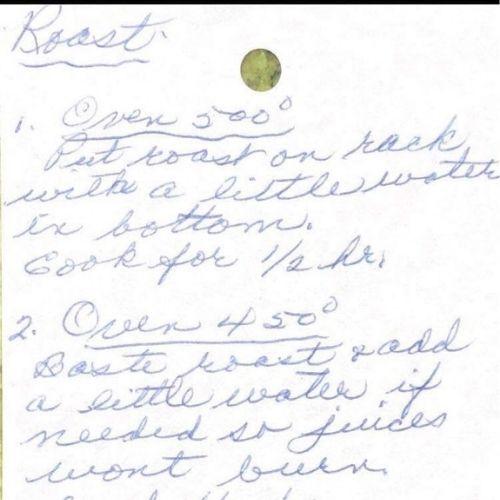 Roast.
1. Oven 500°
Put roast on rack
with a little water
in bottom.
Cook for 1/2 hr.
2. Oven 450°
Baste roast & add
a little water if
needed so juices
wont burn.